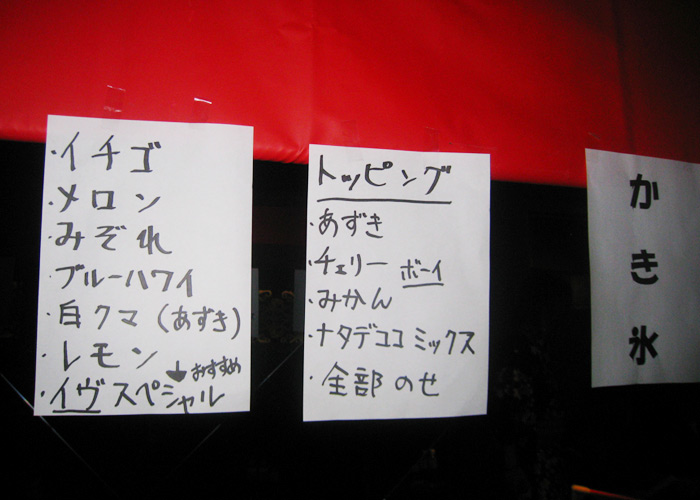 ・イチゴ
・メロン
・みぞれ
・ブルーハワイ
・白クマ(あずき)
・レモン
↓おすすめ
・イヴスペシャル
トッピング
・あずき
・チェリーボーイ
・みかん
・ナタデココミックス
・全部のせ
かき氷